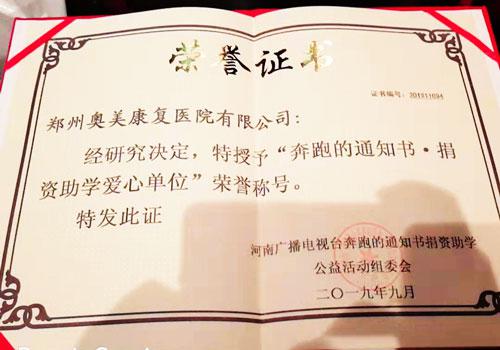 荣誉证书
证书编号：201911094
郑州奥美康复医院有限公司：
经研究决定，特授予“奔跑的通知书·捐
资助学爱心单位”荣誉称号。
特发此证
河南广播电视台奔跑的通知书捐资助学
公益活动组委会
二〇一九年九月